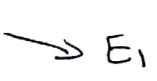 → E₁